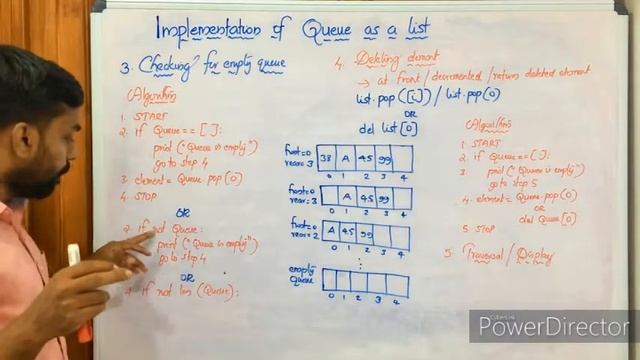 Implementation of Queue as a list
3. Checking for empty queue
Algorithm
1. START
2. if Queue == [ ]:
print ("Queue is empty")
go to step 4
3. element = Queue.pop[0]
4. STOP
OR
2. if not Queue:
print ("Queue is empty")
go to step 4
OR
if not len (Queue):
front=0
rear=3
38 A 45 99
0 1 2 3 4
front=0
rear=3
A 45 99
0 1 2 3 4
front=0
rear=2
A 45 99
0 1 2 3 4
empty
queue
0 1 2 3 4
4. Deleting element
→ at front/decremented/return deleted element
list.pop([i])/list.pop(0)
OR
del list[0]
Algorithm
1. START
2. if Queue==[ ]:
3. print ("Queue is empty")
go to step 5
4. element = Queue.pop[0]
OR
del Queue[0]
5. STOP
5. Traversal / Display
PowerDirector